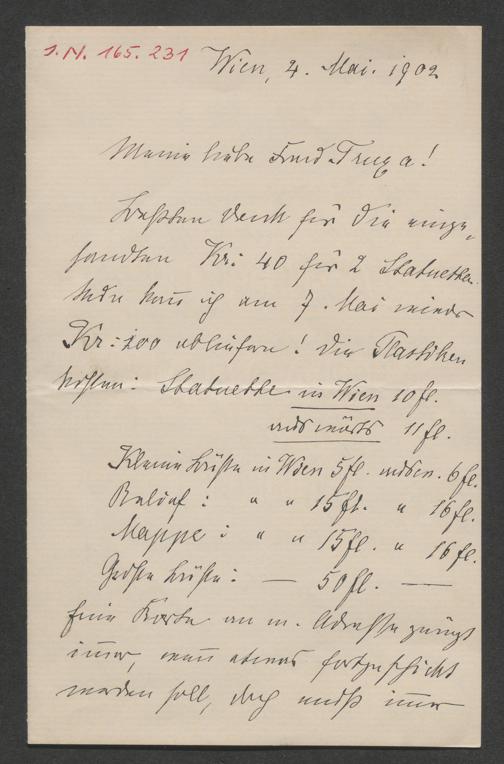 I.N. 165.231
Wien, 4. Mai. 1902
Meine liebe Frau Truxa!
Besten Dank für die einge-
sandten Kr: 40 für 2 Statuetten.
kann ich am 7. Mai wieder
Kr: 200 abliefern! Die Plastiken
kosten: Statuette in Wien 10 fl.
auswärts 11 fl.
Kleine Büste in Wien 5 fl. ausw. 6 fl.
Relief: " " 15 fl. " 16 fl.
Mappe: " " 15 fl. " 16 fl.
Große Büste: — 50 fl. —
Eine Karte an m. Adresse genügt
immer, wenn etwas fortgeschickt
werden soll, doch muß immer